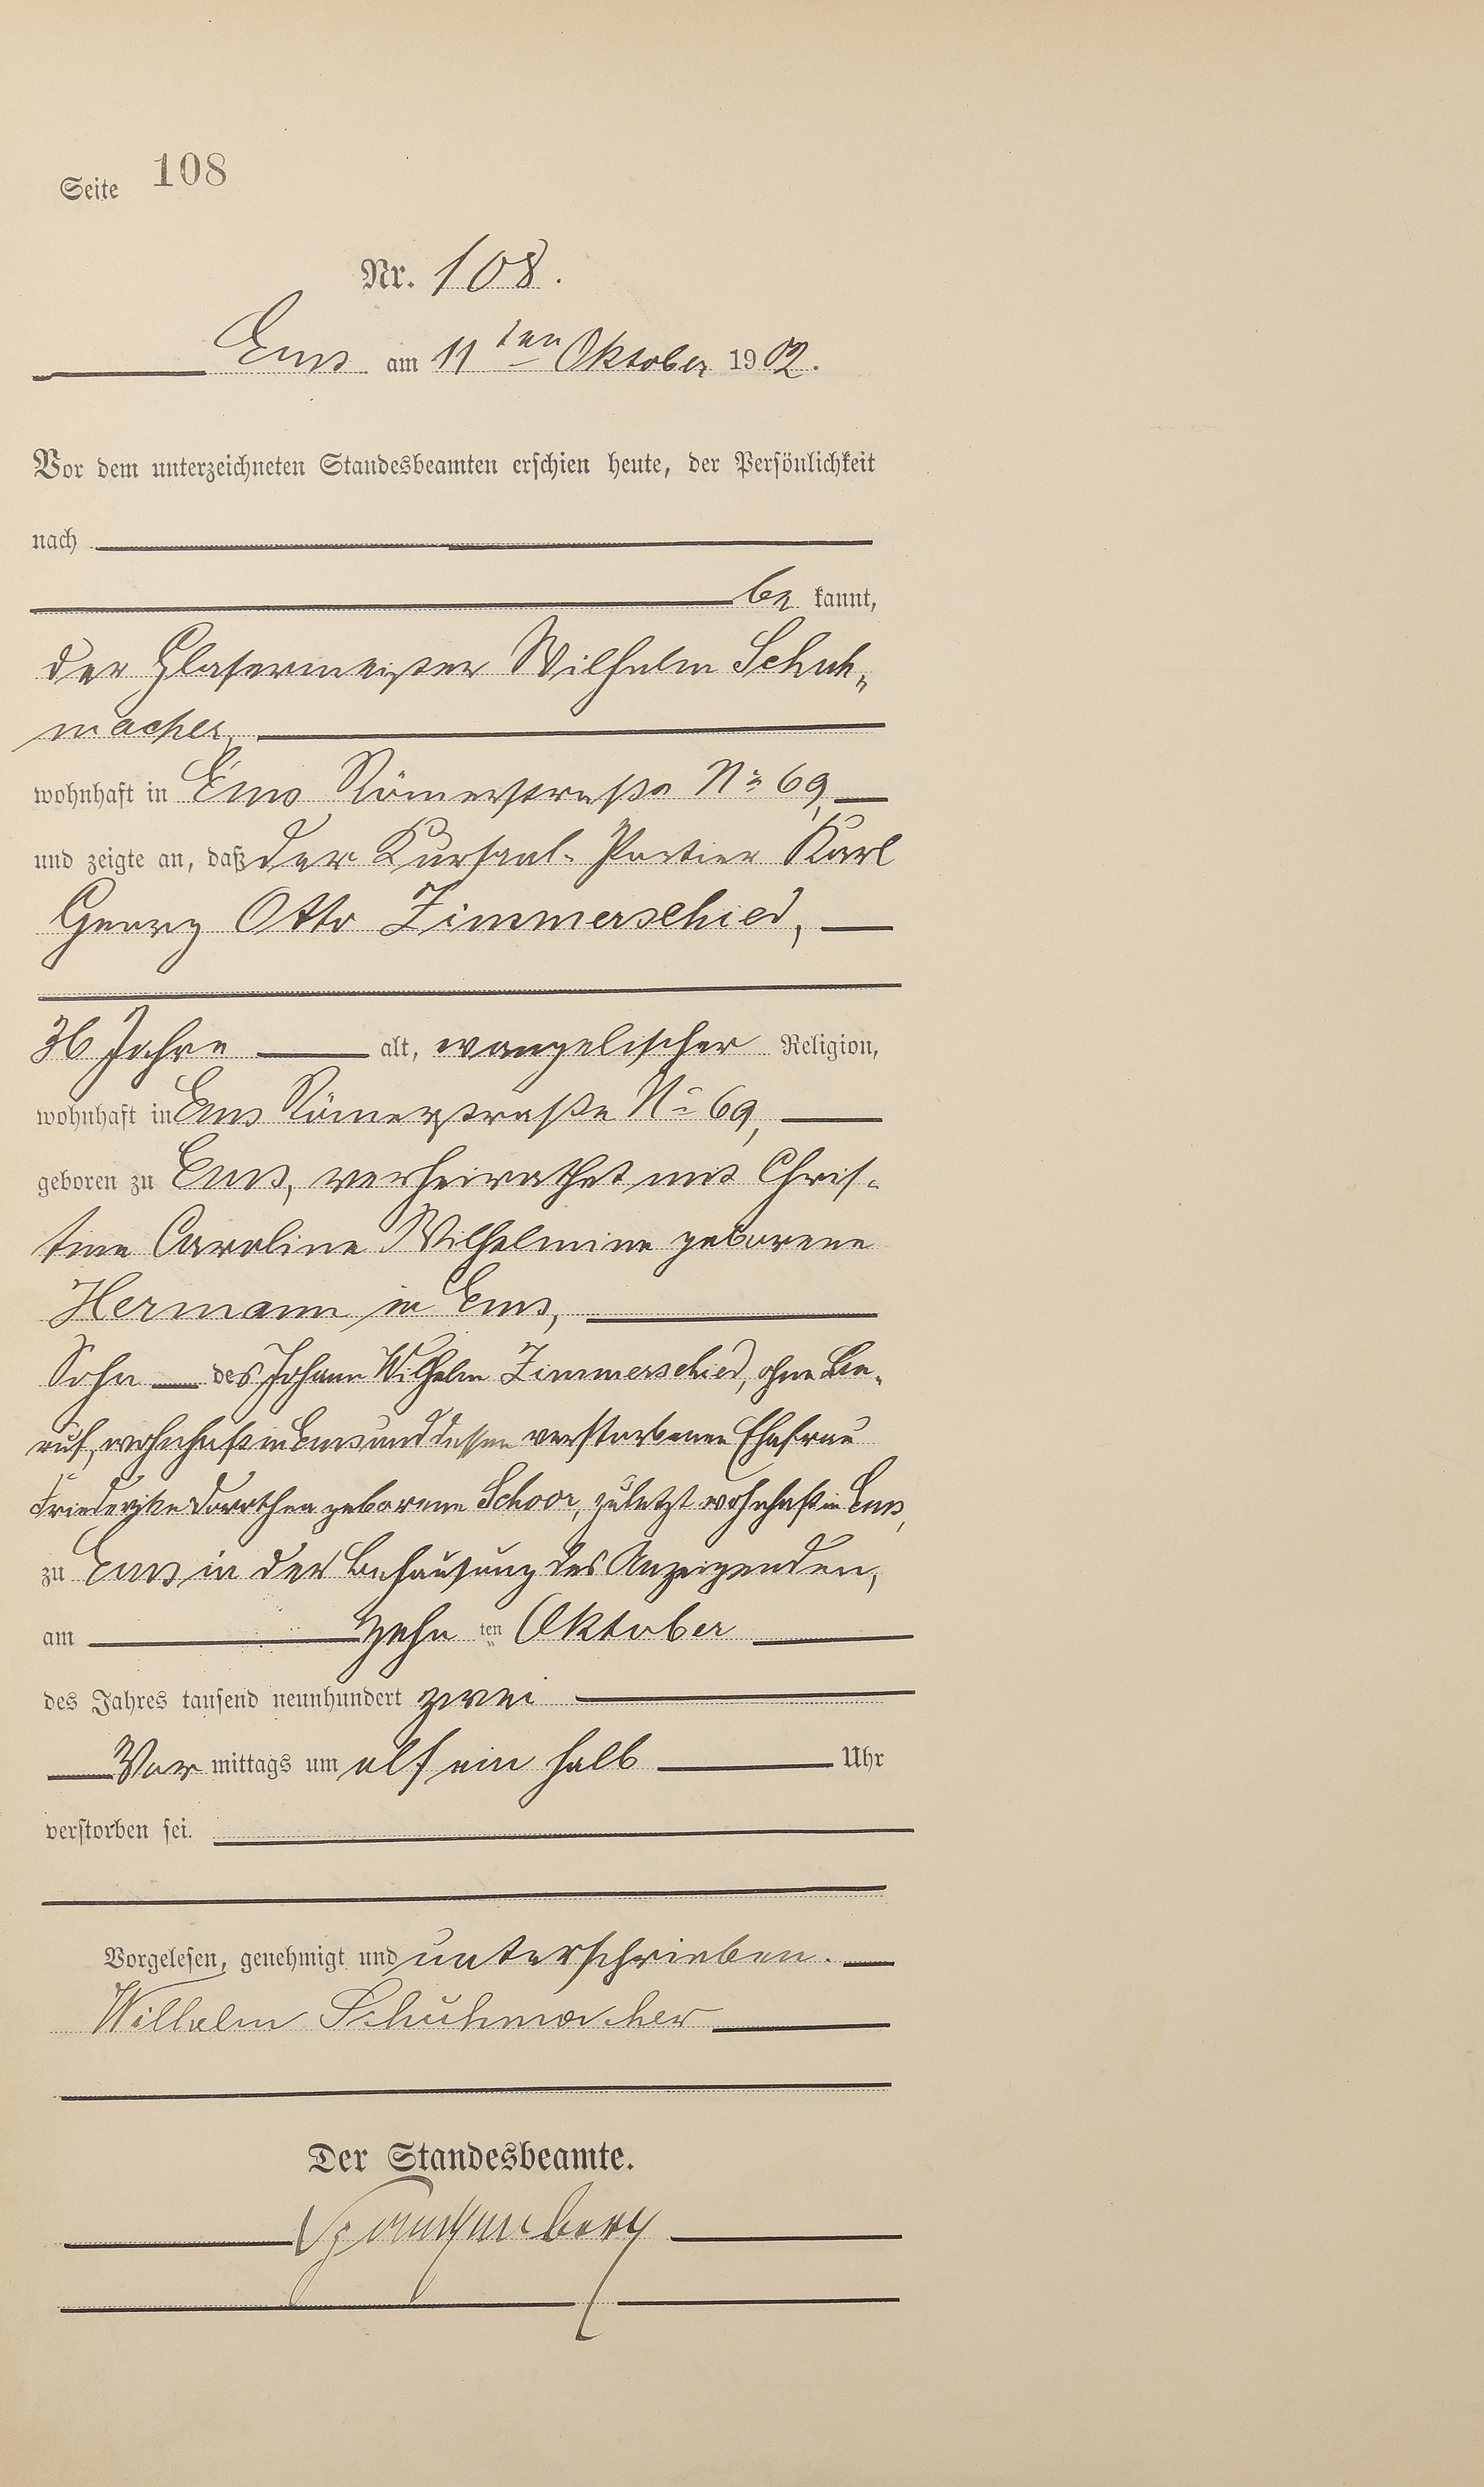 Seite 108
Nr. 108.
Ems am 11ten Oktober 1902.
Vor dem unterzeichneten Standesbeamten erschien heute, der Persönlichkeit
nach
be kannt,
der Glasermeister Wilhelm Schuh-
macher,
wohnhaft in Ems Römerstraße No 69,
und zeigte an, daß der Kursaal-Portier Karl
Georg Otto Zimmerschied,
36 Jahre alt, evangelischer Religion,
wohnhaft in Ems Römerstraße No 69,
geboren zu Ems, verheirathet mit Chris-
tine Caroline Wilhelmine geborene
Hermann in Ems,
Sohn des Johann Wilhelm Zimmerschied, ohne Be-
ruf, wohnhaft in Ems und dessen verstorbenen Ehefrau
Friederike Dorothea geborene Schoor, zuletzt wohnhaft in Ems,
zu Ems in der Behausung des Anzeigenden,
am zehn ten Oktober
des Jahres tausend neunhundert zwei
Vor mittags um elf ein halb Uhr
verstorben sei.
Vorgelesen, genehmigt und unterschrieben.
Wilhelm Schuhmacher
Der Standesbeamte.